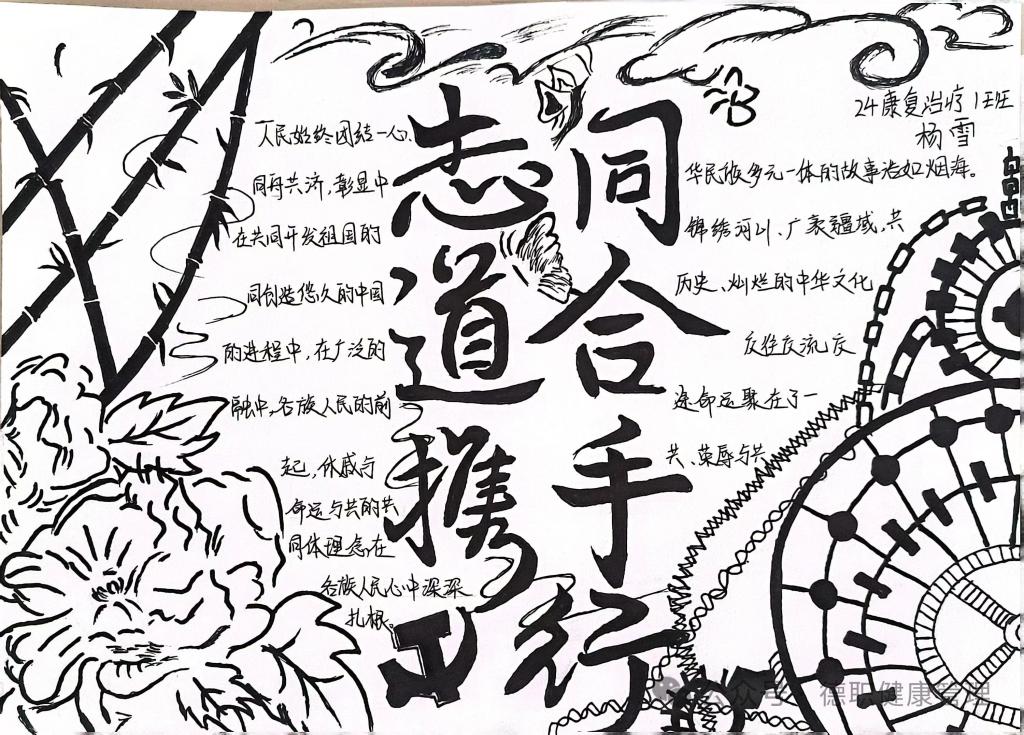 24康复治疗1班
杨雪
志同
道合
携手
行
人民始终团结一心、
同舟共济,彰显中
华民族多元一体的故事浩如烟海。
在共同开发祖国的
锦绣河山、广袤疆域,共
同创造悠久的中国
历史、灿烂的中华文化
的进程中,在广泛的
交往交流交
融中,各族人民的前
途命运聚在了一
起,休戚与
共、荣辱与共
命运与共的共
同体理念在
各族人民心中深深
扎根。
公众号·德职健康管理